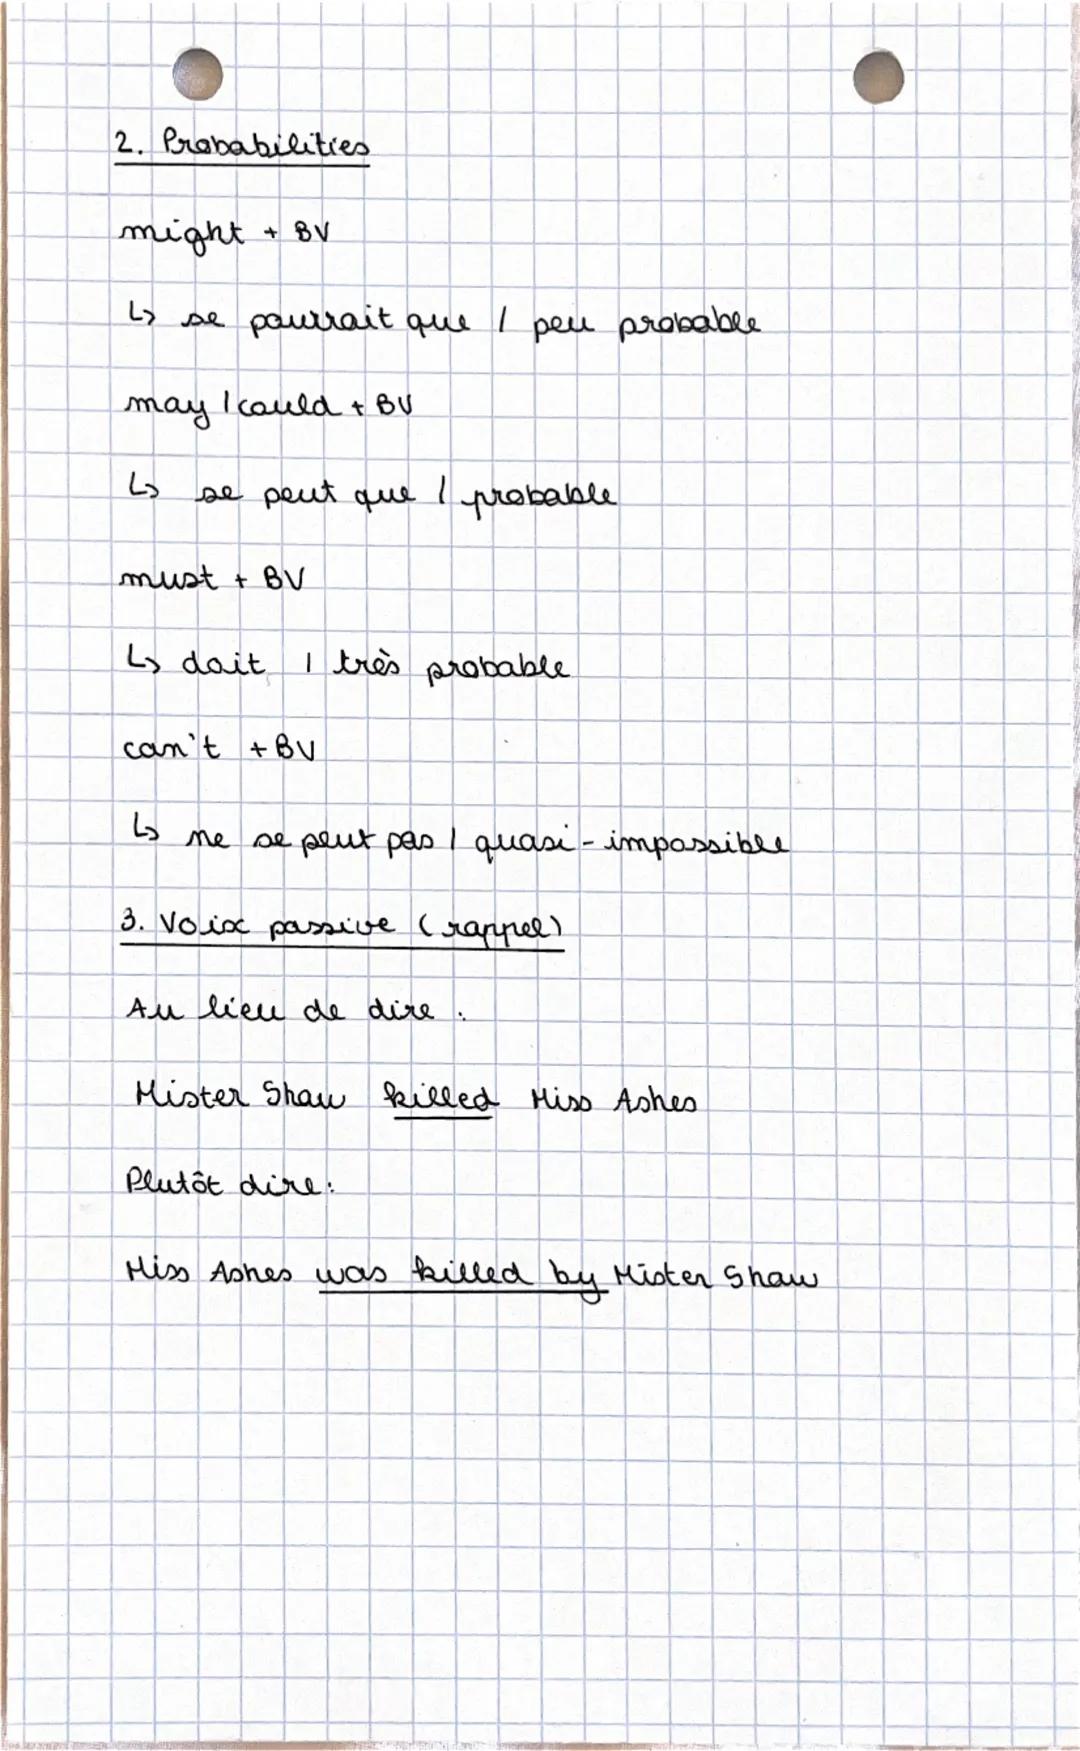 2. Probabilities
might + BV
↳ se pourrait que / peu probable
may / could + BV
↳ se peut que / probable
must + BV
↳ doit / très probable
can't + BV
↳ ne se peut pas / quasi-impossible
3. Voix passive (rappel)
Au lieu de dire :
Mister Shaw killed Miss Ashes
Plutôt dire :
Miss Ashes was killed by Mister Shaw